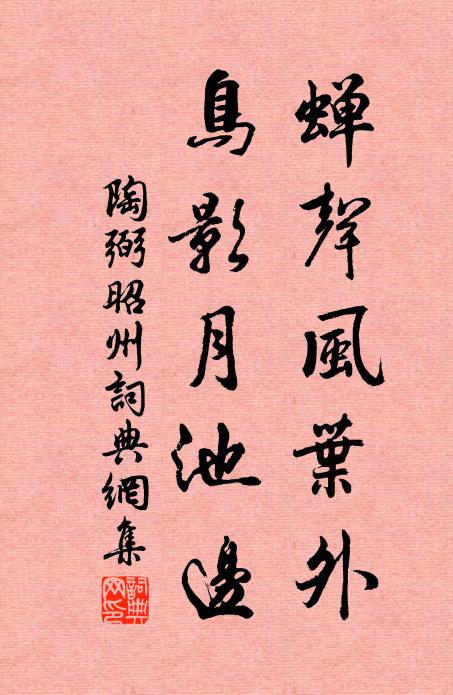 蟬聲風葉外
鳥影月池邊
陶弼昭州詞典網集
詞典网印